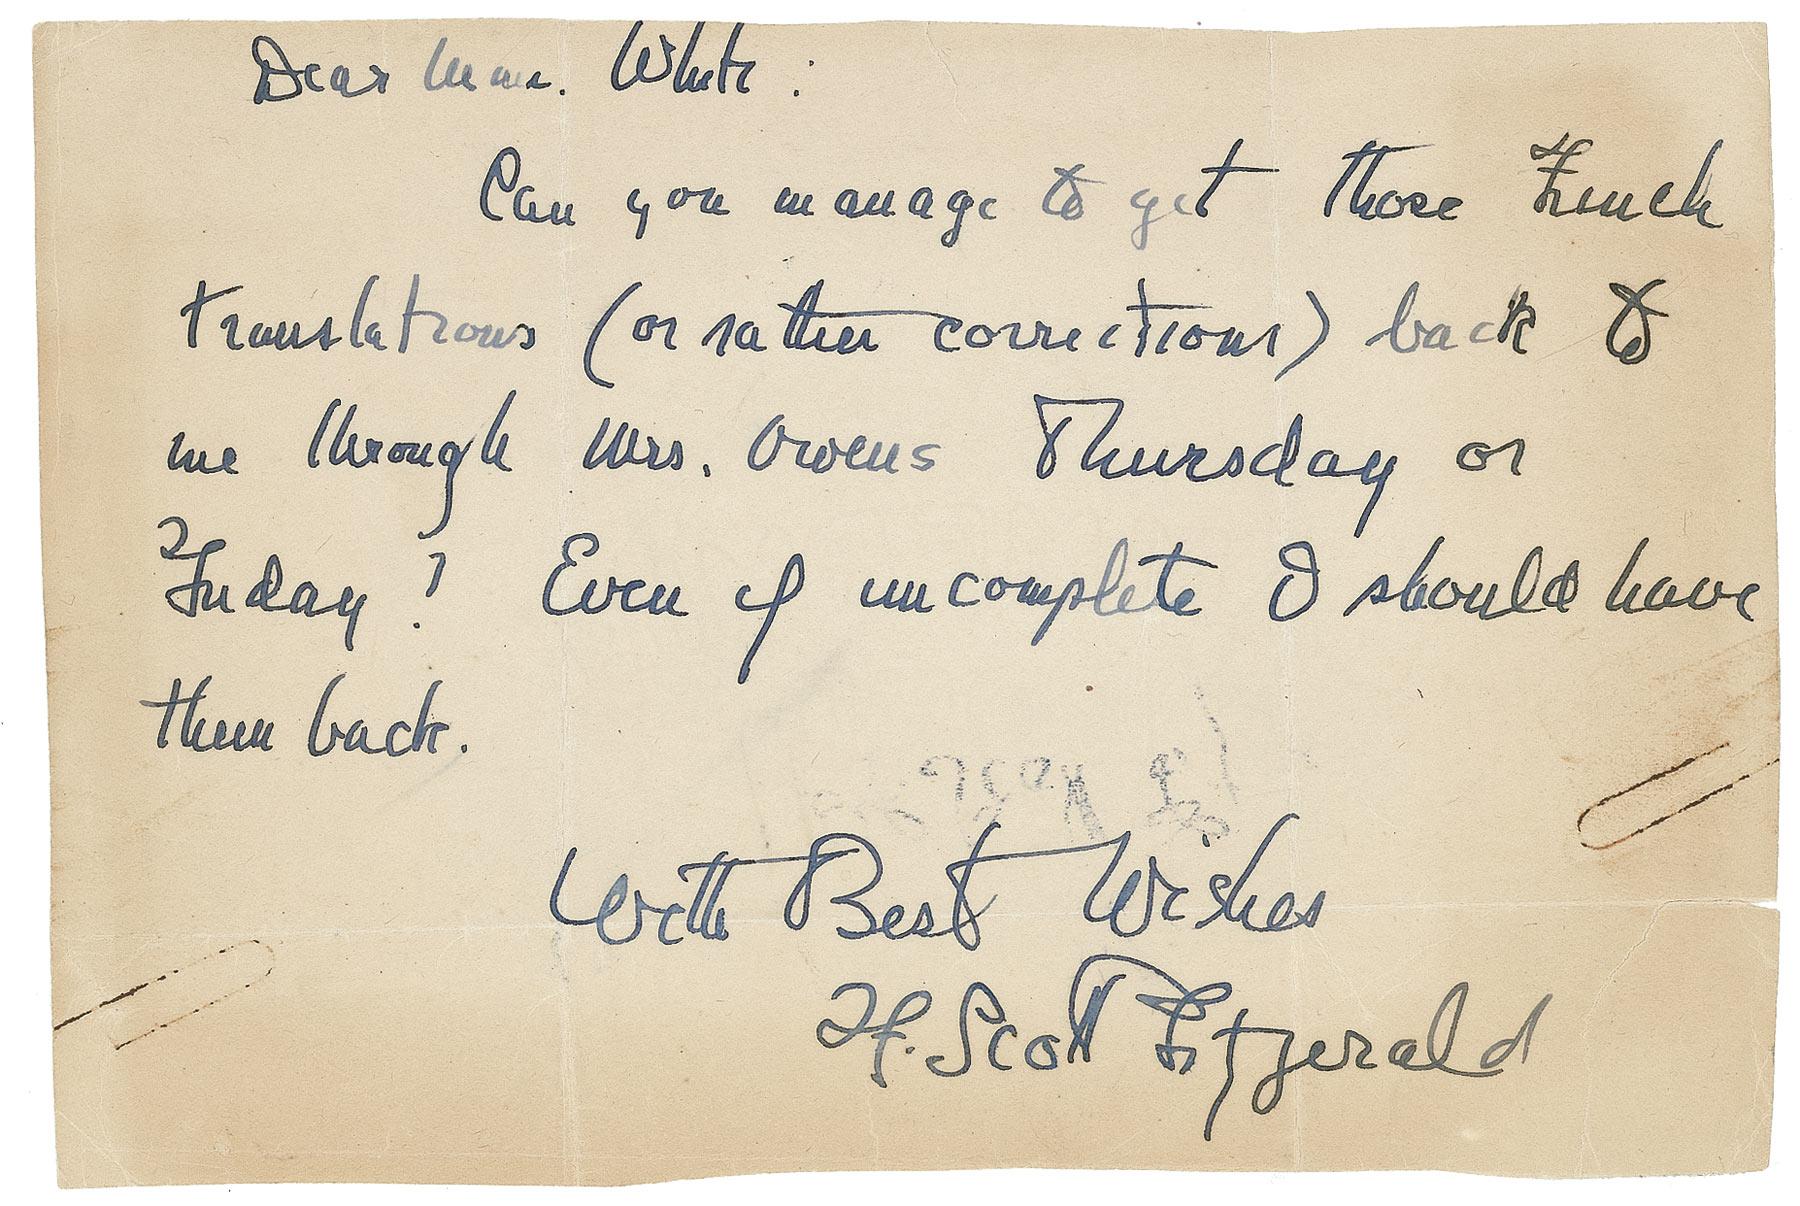 Dear Mme. White:
Can you manage to get those French
translations (or rather corrections) back to
me through Mrs. Owens Thursday or
Friday? Even if uncomplete I should have
them back.
With Best Wishes
F. Scott Fitzgerald